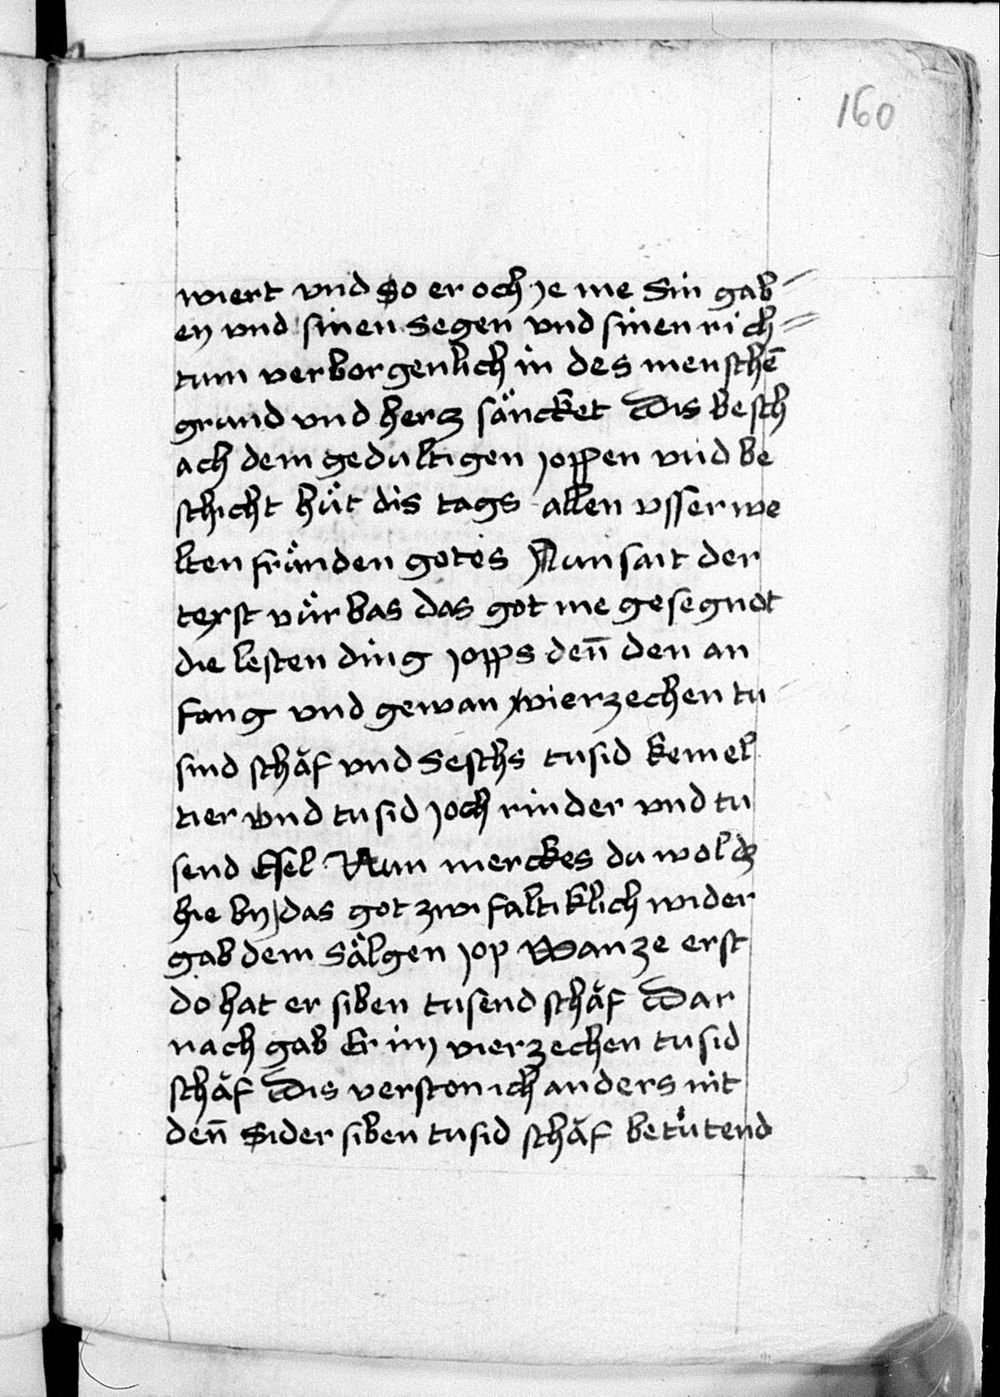 160
wiert vnd so er och ie me sin gab-
en vnd sinen segen vnd sinen rich=
tum verborgenlich in des menschē
grund vnd herz säncket Dis besch
ach dem gedultigen joppen vnd be
schicht hüt dis tags allen vsserwe
lten fründen gotes Nun sait der
texst vür bas das got me gesegnot
die lesten ding jopps den̄ den an
fang vnd gewan vierzechen tu-
sind schäf vnd seschs tusid kemel
tier vnd tusid joch rinder vnd tu
send Esel Nun merckes du wol dz
hie by das got zwifaltiklich wider
gab dem sälgen jop Wan ze erst
do hat er siben tusend schäf Dar
nach gab Er im vierzechen tusid
schäf Dis verston ich anders nit
den̄ sider siben tusid schäf betütend